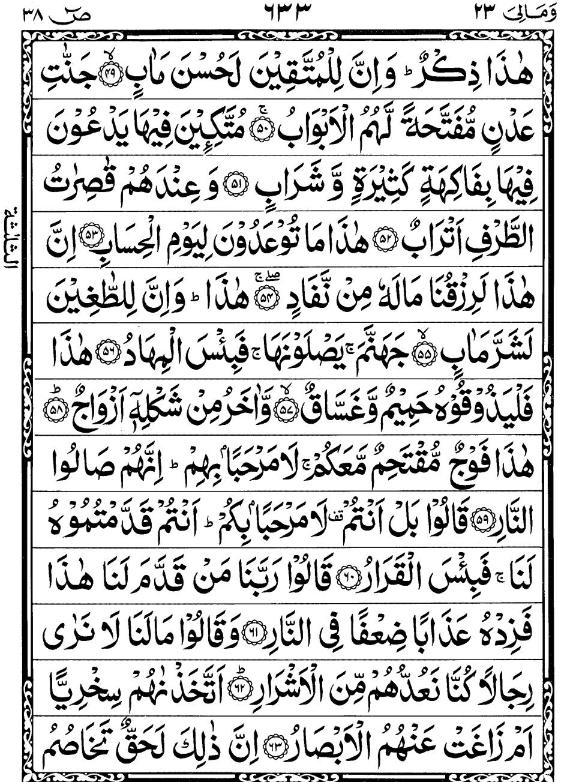 وَمَالِیَ ٢٣ ٦٣٣ صٓ ٣٨
هٰذَا ذِكْرٌ ؕ وَاِنَّ لِلْمُتَّقِيْنَ لَحُسْنَ مَاٰبٍ ۙ﴿۴۹﴾ جَنّٰتِ
عَدْنٍ مُّفَتَّحَةً لَّهُمُ الْاَبْوَابُ ۚ﴿۵۰﴾ مُتَّكِـِٕيْنَ فِيْهَا يَدْعُوْنَ
فِيْهَا بِفَاكِهَةٍ كَثِيْرَةٍ وَّ شَرَابٍ ﴿۵۱﴾ وَ عِنْدَهُمْ قٰصِرٰتُ
الطَّرْفِ اَتْرَابٌ ﴿۵۲﴾ هٰذَا مَا تُوْعَدُوْنَ لِيَوْمِ الْحِسَابِ ﴿۵۳﴾ اِنَّ
هٰذَا لَرِزْقُنَا مَالَهٗ مِنْ نَّفَادٍ ۚۖ﴿۵۴﴾ هٰذَا ؕ وَاِنَّ لِلطّٰغِيْنَ
لَشَرَّ مَاٰبٍ ۙ﴿۵۵﴾ جَهَنَّمَ ۚ يَصْلَوْنَهَا ۚ فَبِئْسَ الْمِهَادُ ﴿۵۶﴾ هٰذَا
فَلْيَذُوْقُوْهُ حَمِيْمٌ وَّغَسَّاقٌ ۙ﴿۵۷﴾ وَّاٰخَرُ مِنْ شَكْلِهٖۤ اَزْوَاجٌ ؕ﴿۵۸﴾
هٰذَا فَوْجٌ مُّقْتَحِمٌ مَّعَكُمْ ۚ لَا مَرْحَبًاۢ بِهِمْ ؕ اِنَّهُمْ صَالُوا
النَّارِ ﴿۵۹﴾ قَالُوْا بَلْ اَنْتُمْ ۫ لَا مَرْحَبًاۢ بِكُمْ ؕ اَنْتُمْ قَدَّمْتُمُوْهُ
لَنَا ۚ فَبِئْسَ الْقَرَارُ ﴿۶۰﴾ قَالُوْا رَبَّنَا مَنْ قَدَّمَ لَنَا هٰذَا
فَزِدْهُ عَذَابًا ضِعْفًا فِى النَّارِ ﴿۶۱﴾ وَقَالُوْا مَالَنَا لَا نَرٰى
رِجَالًا كُنَّا نَعُدُّهُمْ مِّنَ الْاَشْرَارِ ؕ﴿۶۲﴾ اَتَّخَذْنٰهُمْ سِخْرِيًّا
اَمْ زَاغَتْ عَنْهُمُ الْاَبْصَارُ ﴿۶۳﴾ اِنَّ ذٰلِكَ لَحَقٌّ تَخَاصُمُ
الثلٰثة